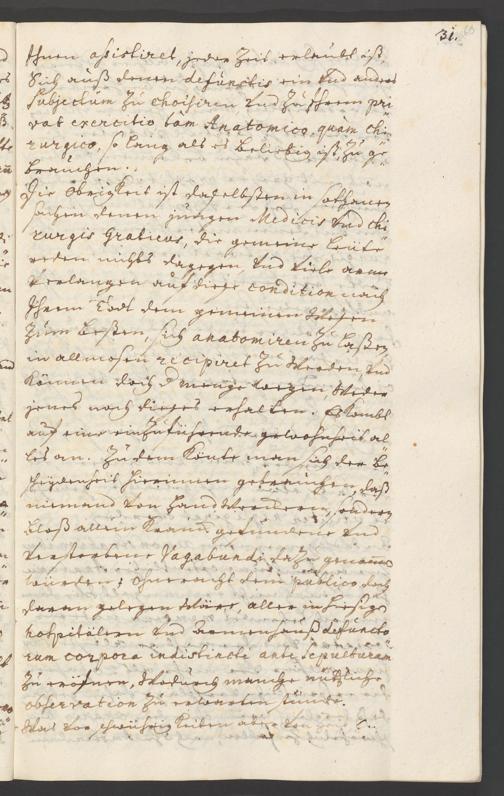 31.
Ihnen assistiret, jeder Zeit erlaubt ist,
Sich auß denen defunctis ein und anderes
Subjectum zu choisiren und zu Ihrem pri¬
vat exercitio tam Anatomico, quàm Chi¬
rurgico, so lang als es beliebig ist, zu ge¬
brauchen.
Die Obrigkeit ist daselbsten in sothanen
sachen denen jungen Medicis und Chi¬
rurgis Gratieus, die gemeine Leüte
reden nichts dagegen, und viele arme
verlangen auf diese condition nach
Ihrem Todt dem gemeinen Wesen
zum besten, sich anatomiren zu laßen,
in allmosen recipiret zu werden, und
können doch d menge wegen weder
jenes noch dieses erhalten. Es kombt
auf eine einzuführende gewohnheit al¬
les an. Zu dem könte man sich der be¬
scheidenheit hierinnen gebrauchen, daß
niemand von Handwerckern, sondern
bloß allein gefundene und
verstorbene Vagabundi dazu genommen
würden; ohneracht dem publico doch
daran gelegen wäre, aller in hiesigen
hospitälern und Armenhauß defuncto¬
rum corpora indistincte ante Sepulturam
zu eröfnen, wodurch manche nützliche
observation zu erwarten stünde.
Was vor